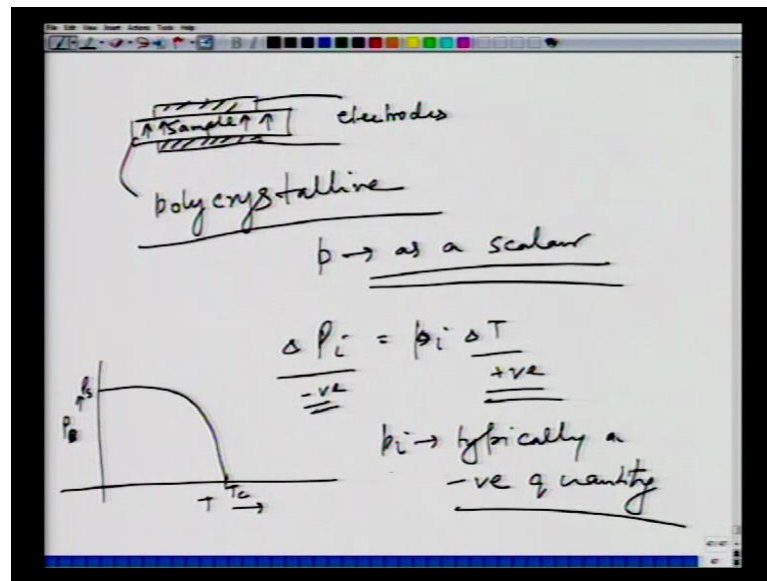 File Edit View Insert Actions Tools Help
Sample
electrodes
polycrystalline
p → as a scalar
Δ Pi = pi Δ T
-ve
+ve
Ps
T Tc →
pi → typically a
-ve quantity
47/47
47